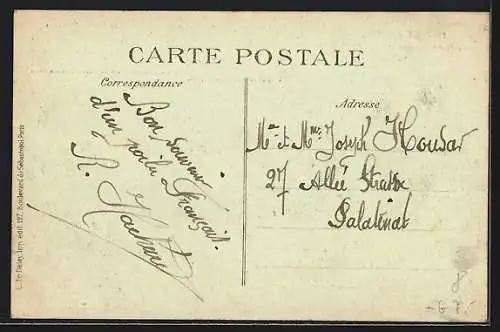 CARTE POSTALE
Correspondance
Bon souvenir
d'un poilu Français.
R.
Adresse
Mr et Mme Joseph Houdar
27 Allée Strasse
Palatinat
L. Le Deley, Imp. édit. 127, Boulevard de Sébastopol, Paris